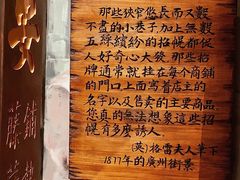 那些狹窄悠長而又數
不盡的小巷子加上無數
五綵繽紛的招幌都促
人好奇心大發那些招
牌通常就挂在每个商鋪
的門口上面寫着店主的
名字以及售卖的主要商品
您真的無法想象這些招
幌有多麼誘人.
(英)格雷夫人筆下
1877年的廣州街景